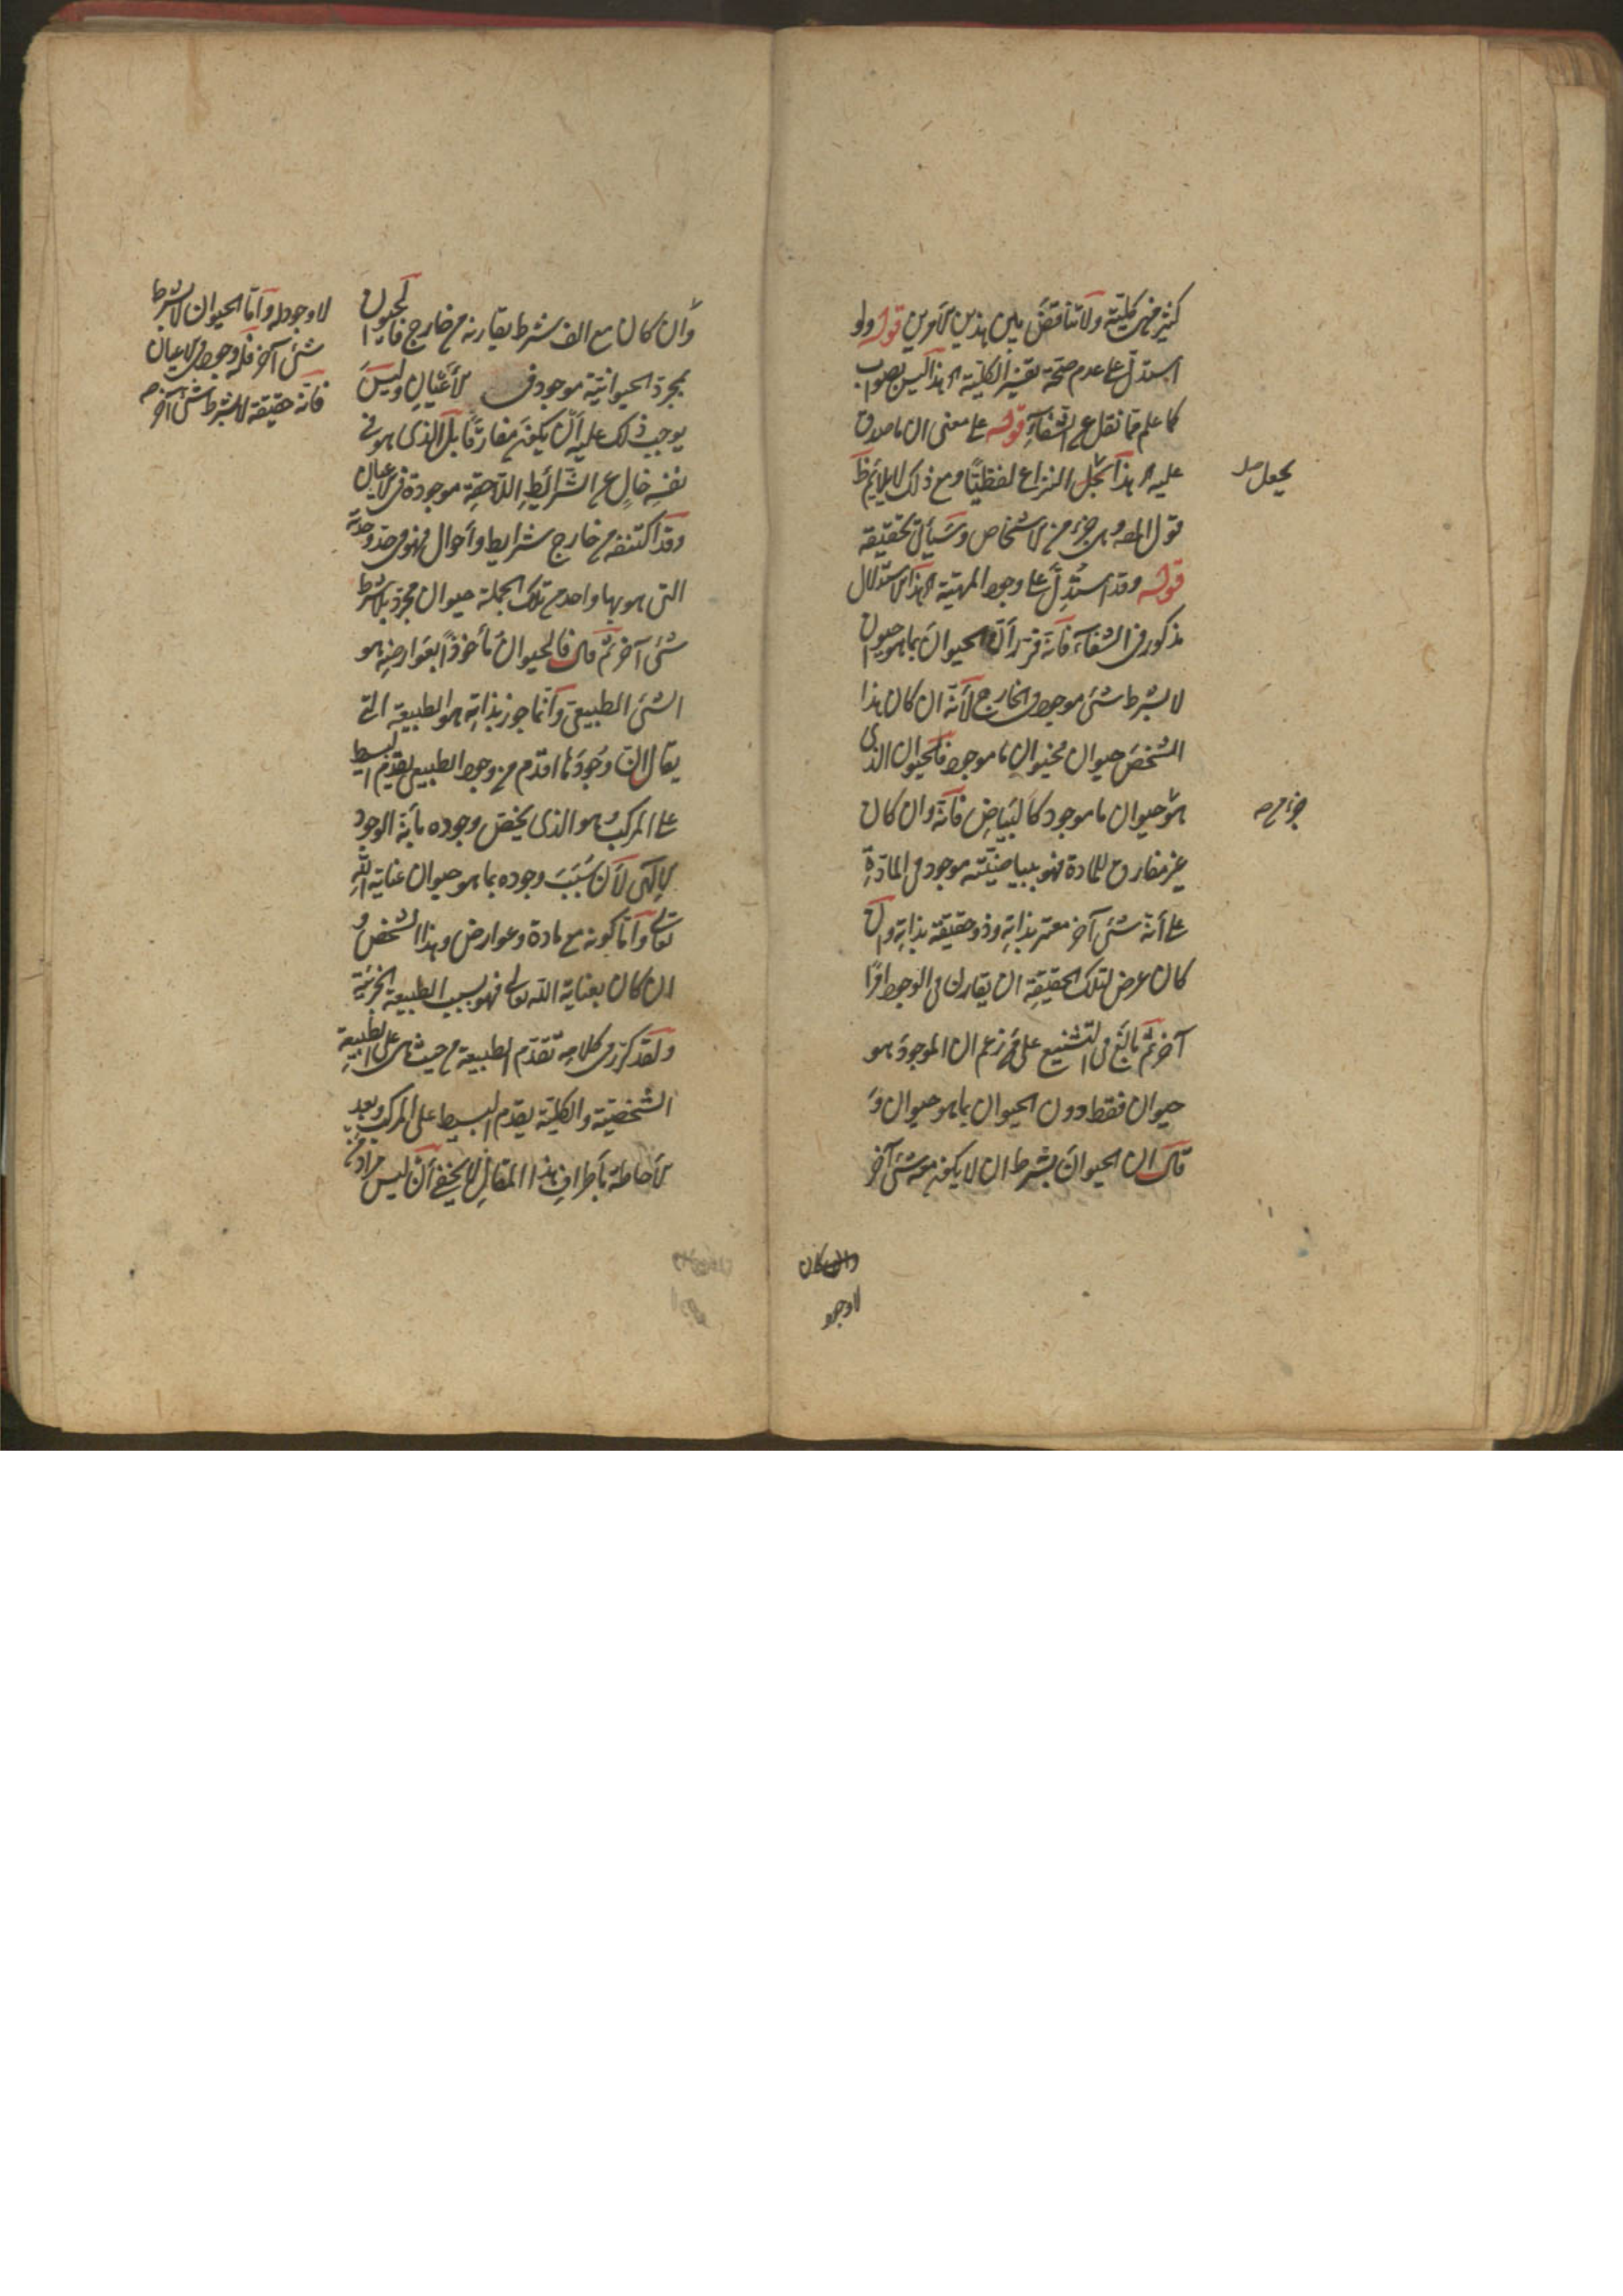 كثير فهي كلية ولا تناقض بين هذين الأمرين قوله ولو
استدل على عدم صحة تفسير الكلية اه هذا ليس بصواب
كما علم مما نقل عن الشفاء قوله على معنى ان ما صدق
عليه اه هذا يجعل النزاع لفظيا ومع ذلك لا يلايم ظ
يجعل صل
قول المصـ وهي جزء من الأشخاص وسيأتي تحقيقه
قوله وقد استدل على وجود المهية اه هذا الاستدلال
مذكور في الشفاء فانه قرر أن الحيوان بما هو حيوان
لا بشرط شئ موجود في الخارج لأنه ان كان هذا
الشخص حيوان فحيوان ما موجود فالحيوان الذي
هو حيوان ما موجود كالبياض فانه وان كان
جزء من صح
غير مفارق للمادة فهو ببياضيته موجود في المادة
على أنه شئ آخر معتبر بذاته وذو حقيقة بذاته وان
كان عرض لتلك الحقيقة ان يقارن في الوجود امرا
آخر ثم بالغ في التشنيع على من زعم ان الموجود هو
حيوان فقط دون الحيوان بما هو حيوان و
قال ان الحيوان بشرط ان لا يكون معه شئ آخر
وان كان
لا وجود
وان كان مع الف شرط يقارنه من خارج فالحيوان
بمجرد الحيوانية موجود في الأعيان وليس
يوجب ذلك عليه أن يكون مفارقا بل الذي هو في
نفسه خال عن الشرائط اللاحقة موجودة في الأعيان
وقد اكتنفه من خارج شرايط وأحوال فهو في حد وحدته
التي هو بها واحد من تلك الجملة حيوان مجرد بلا شرط
شئ آخر ثم قال فالحيوان مأخوذا بعوارضه هو
الشئ الطبيعي والمأخوذ بذاته هو الطبيعة التي
يقال ان وجودها اقدم من وجود الطبيعي بقدم البسيط
على المركب وهو الذي يخص وجوده بأنه الوجود
الإلهي لأن سبب وجوده بما هو حيوان عناية الله
تعالى وأما كونه مع مادة وعوارض وهذا الشخص و
ان كان بعناية الله تعالى فهو بسبب الطبيعة الجزئية
ولقد كرر في كلامه تقدم الطبيعة من حيث هي على الطبيعة
الشخصية والكلية بقدم البسيط على المركب وبعد
الأحاطة بأطراف هذا المقال لا يخفى أن ليس مراد
لا وجود له وأما الحيوان لا بشرط
شئ آخر فله وجود في الأعيان
فانه حقيقة لا بشرط شئ آخر صح